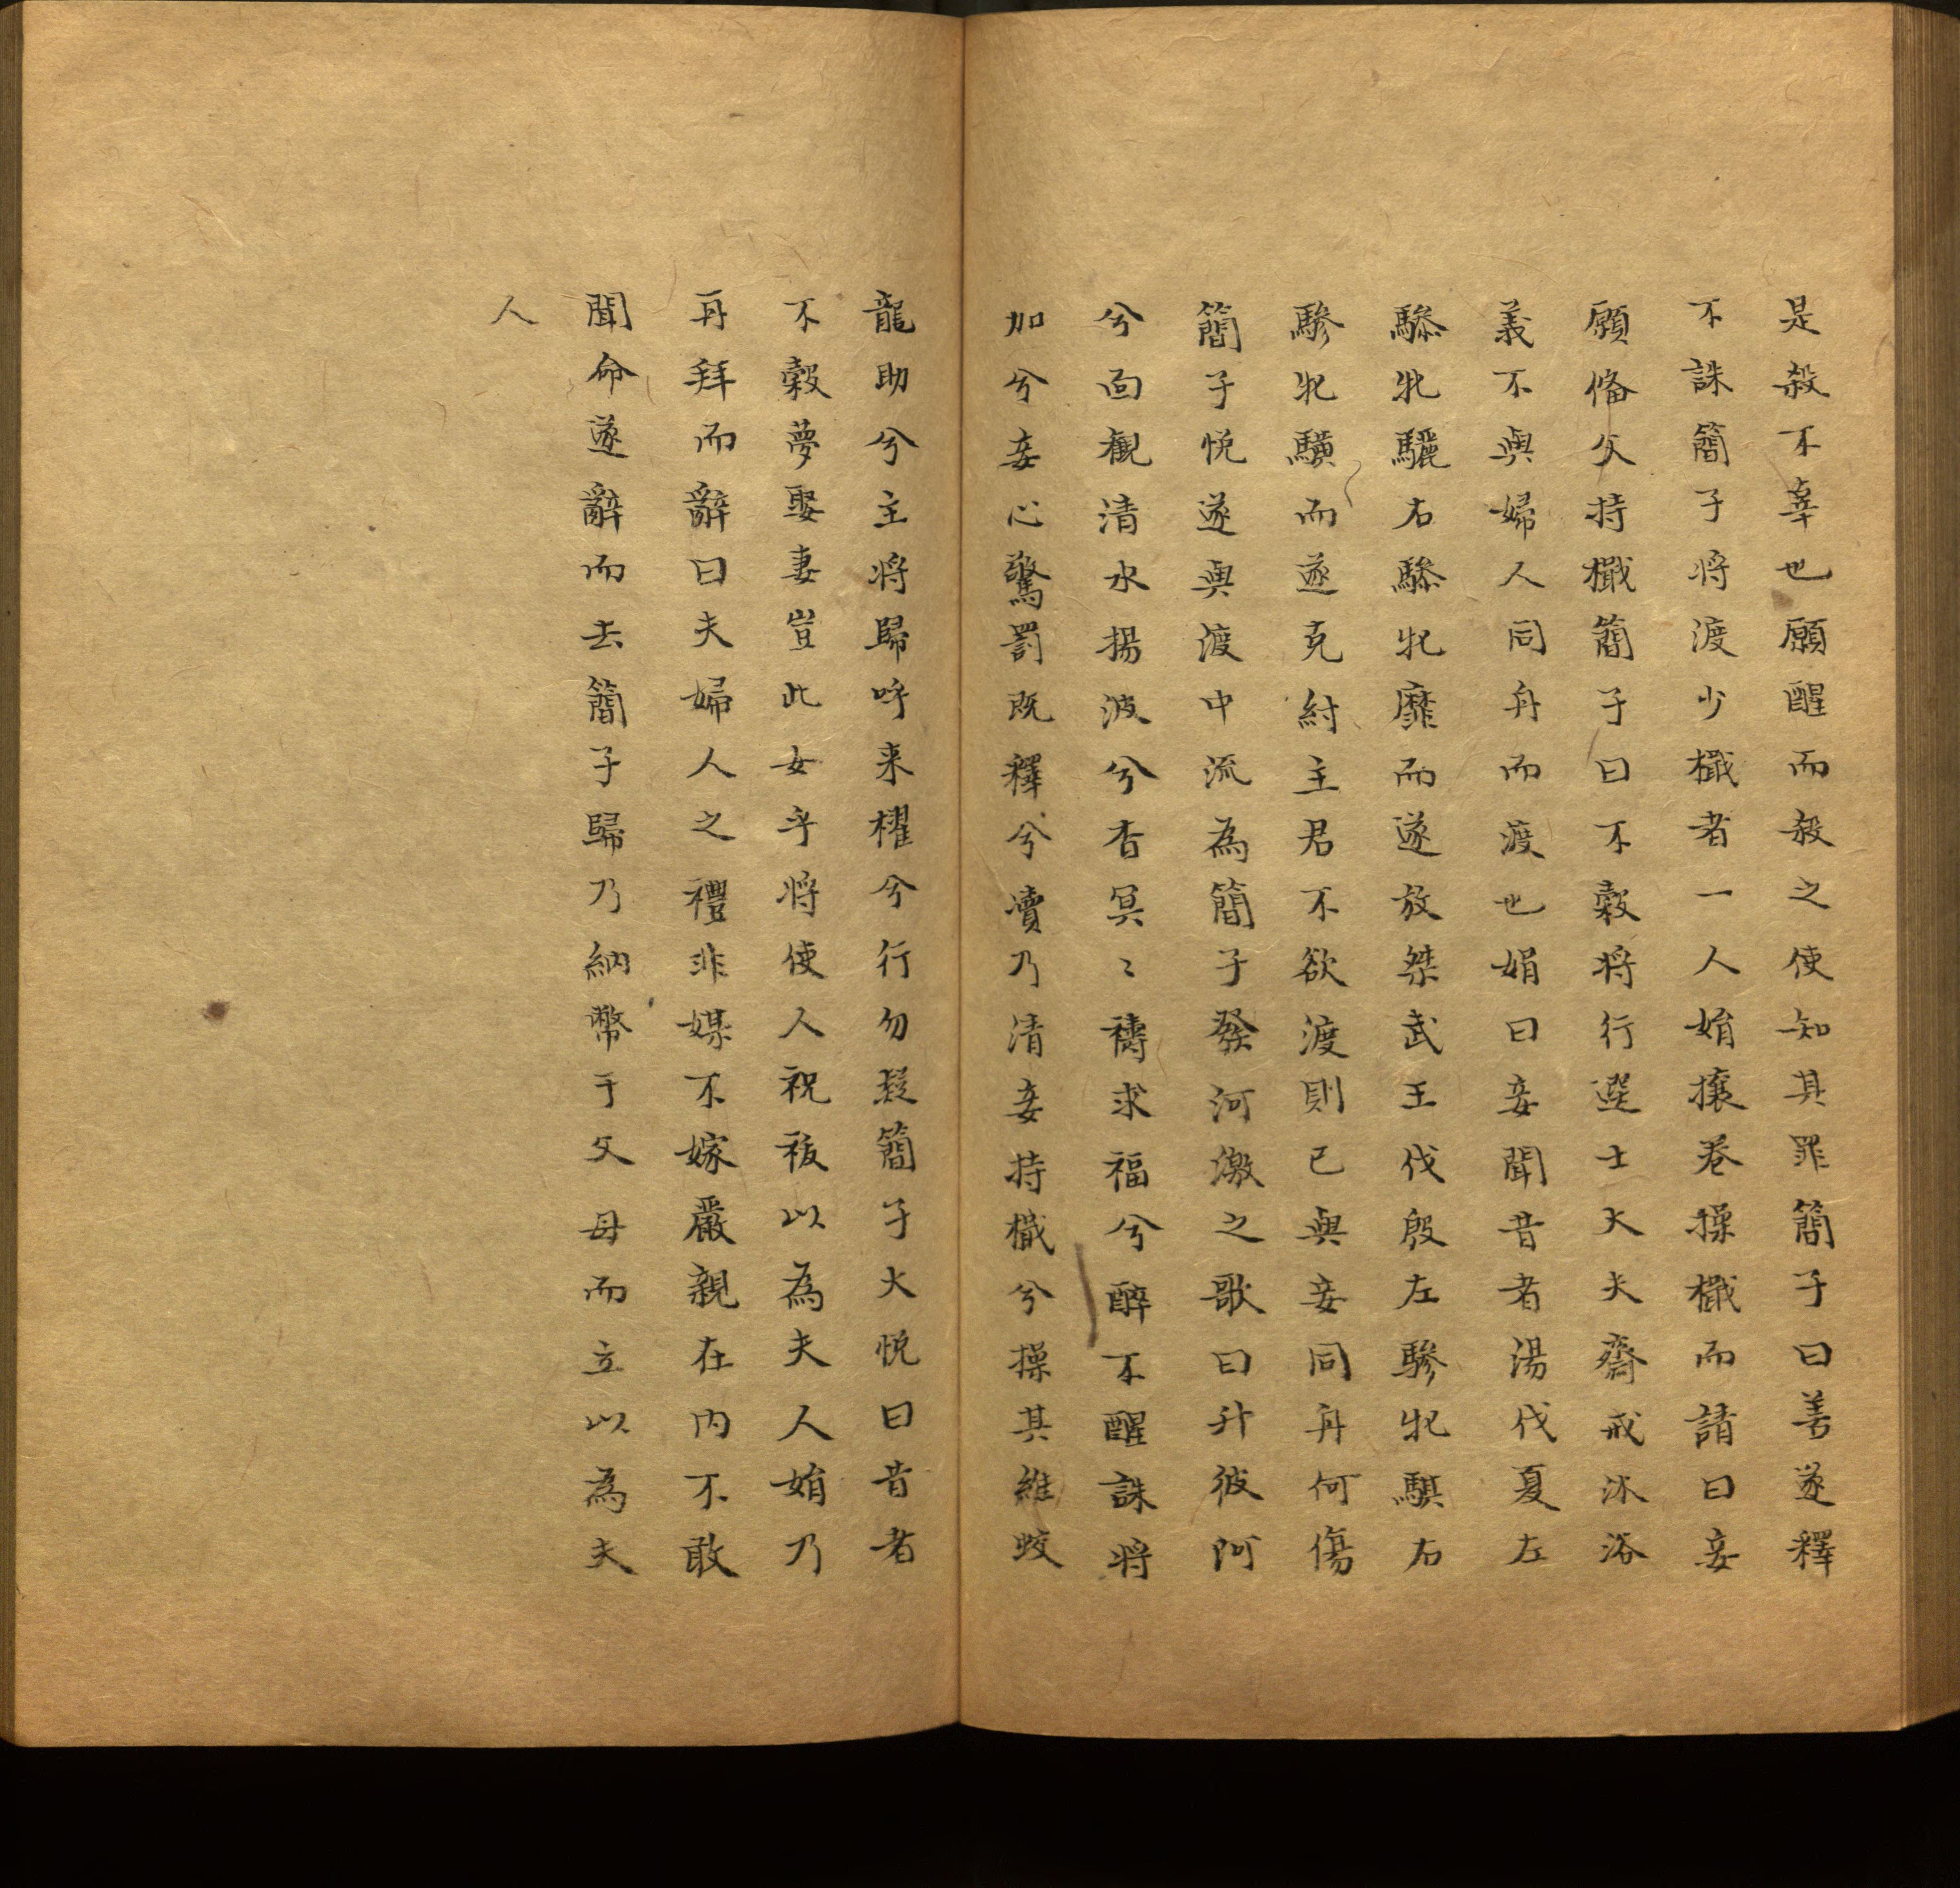 是殺不辜也願醒而殺之使知其罪簡子曰善遂釋
不誅簡子將渡少檝者一人娟攘卷操檝而請曰妾
願俻父持檝簡子曰不穀將行選士大夫齋戒沐浴
義不與婦人同舟而渡也娟曰妾聞昔者湯伐夏左
驂牝驪右驂牝靡而遂放桀武王伐殷左驂牝騏右
驂牝騜而遂克紂主君不欲渡則已與妾同舟何傷
簡子悅遂與渡中流為簡子發河激之歌曰升彼阿
兮面觀清水揚波兮杳冥〻禱求福兮醉不醒誅將
加兮妾心驚罰既釋兮瀆乃清妾持檝兮操其維蛟
龍助兮主將歸呼来櫂兮行勿疑簡子大悅曰昔者
不穀夢娶妻豈此女乎將使人祝祓以為夫人娟乃
再拜而辭曰夫婦人之禮非媒不嫁嚴親在内不敢
聞命遂辭而去簡子歸乃納幣于父母而立以為夫
人